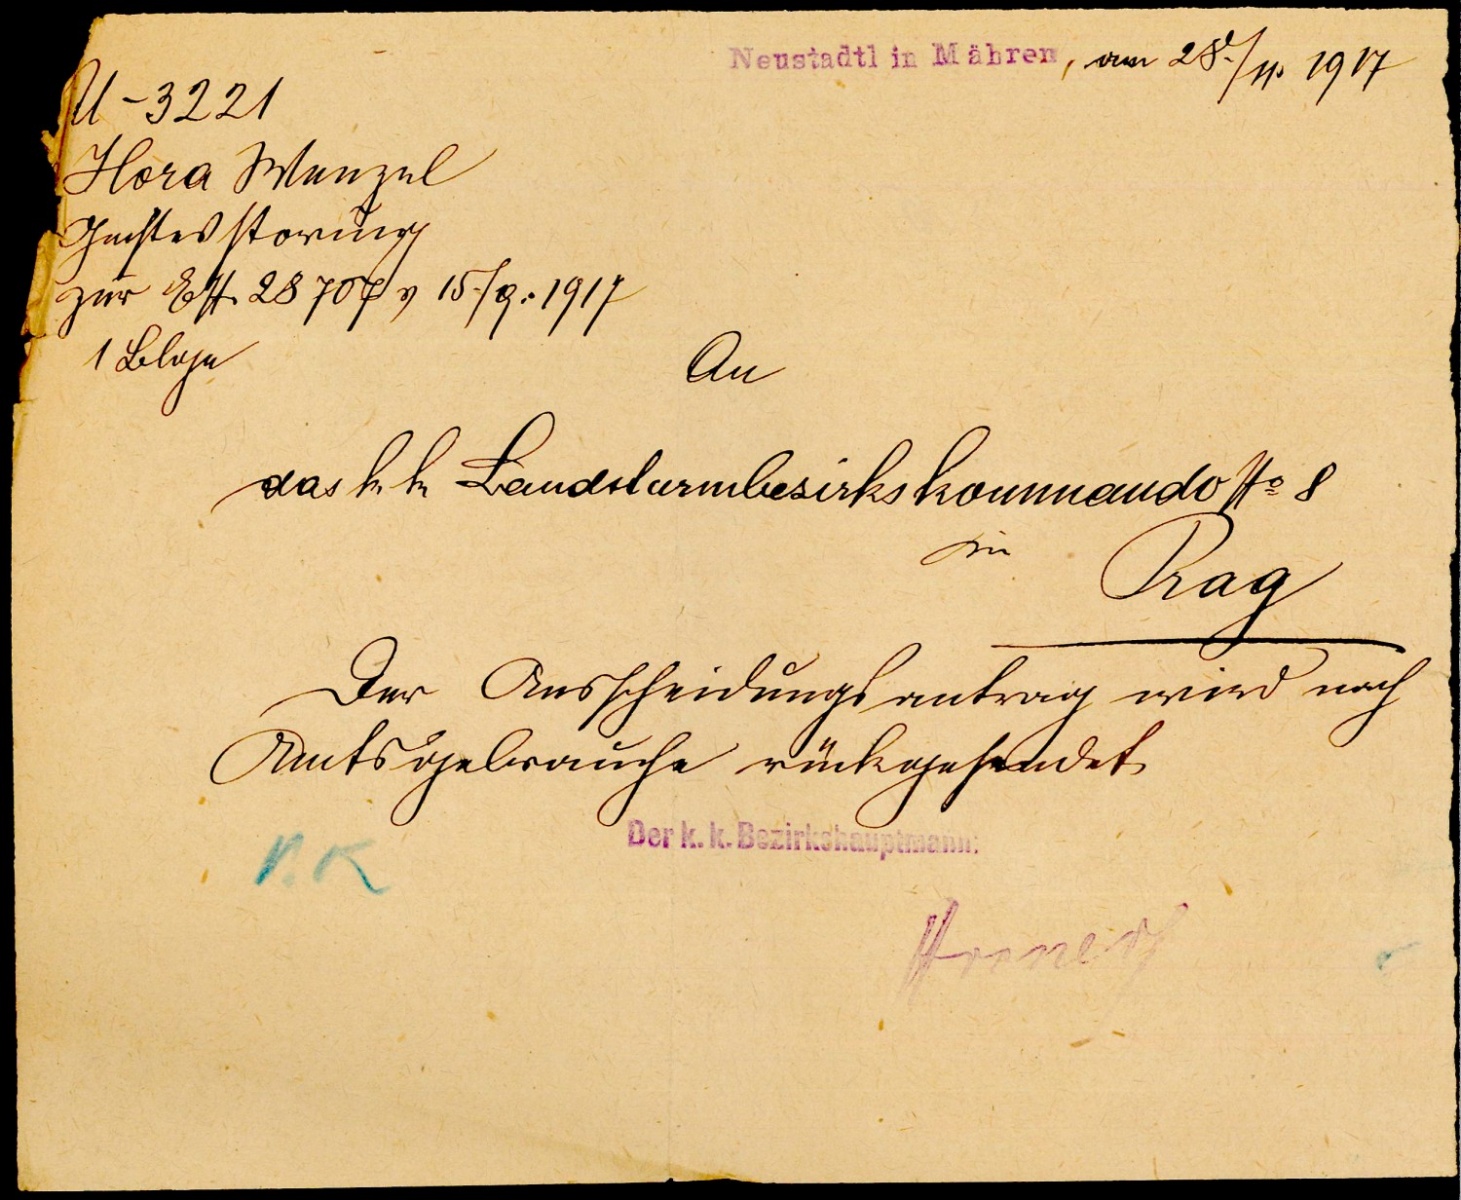 Neustadtl in Mähren, am 28./11. 1917
U-3221
Hora Wenzel
Geistesstörung
zur Est. 28707 v 15./9. 1917
1 Blge
An
das k. k. Landsturmbezirkskommando No 8
in Prag
Der Ausscheidungsantrag wird nach
Amtsgebrauche rückgesendet
Der k. k. Bezirkshauptmann:
V.K